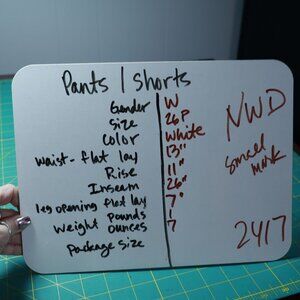 Pants / Shorts
Gender W
Size 26P
Color White
Waist - flat lay 13"
Rise 11"
Inseam 26"
leg opening flat lay 7"
Weight Pounds 1
Ounces 7
Package Size
NWD
Small
mark
2417